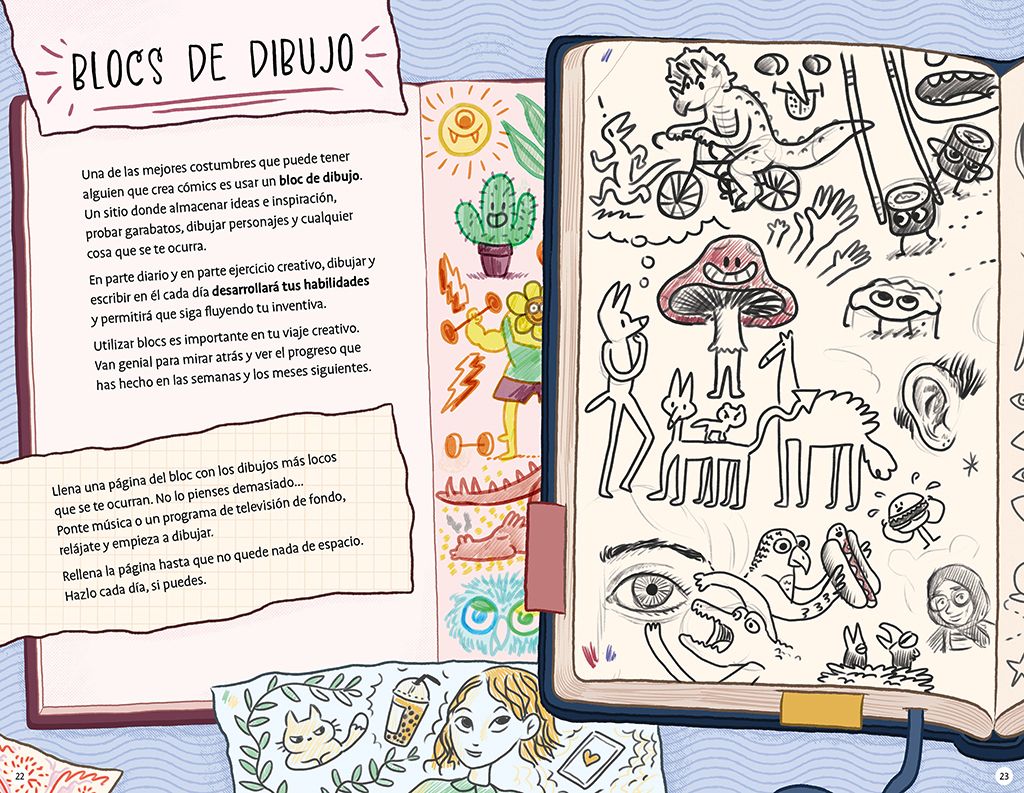 BLOCS DE DIBUJO
Una de las mejores costumbres que puede tener
alguien que crea cómics es usar un bloc de dibujo.
Un sitio donde almacenar ideas e inspiración,
probar garabatos, dibujar personajes y cualquier
cosa que se te ocurra.
En parte diario y en parte ejercicio creativo, dibujar y
escribir en él cada día desarrollará tus habilidades
y permitirá que siga fluyendo tu inventiva.
Utilizar blocs es importante en tu viaje creativo.
Van genial para mirar atrás y ver el progreso que
has hecho en las semanas y los meses siguientes.
Llena una página del bloc con los dibujos más locos
que se te ocurran. No lo pienses demasiado...
Ponte música o un programa de televisión de fondo,
relájate y empieza a dibujar.
Rellena la página hasta que no quede nada de espacio.
Hazlo cada día, si puedes.
22
23